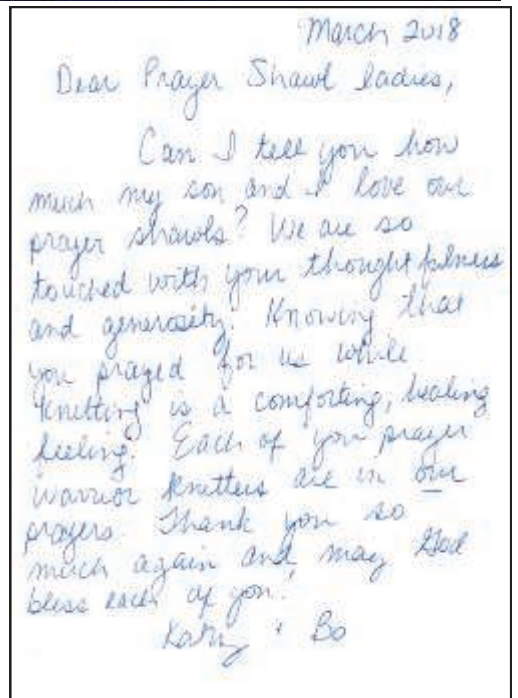 March 2018
Dear Prayer Shawl ladies,
Can I tell you how
much my son and I love our
prayer shawls? We are so
touched with your thoughtfulness
and generosity. Knowing that
you prayed for us while
knitting is a comforting, healing
feeling. Each of you prayer
warrior knitters are in our
prayers. Thank you so
much again and, may God
bless each of you.
& Bo